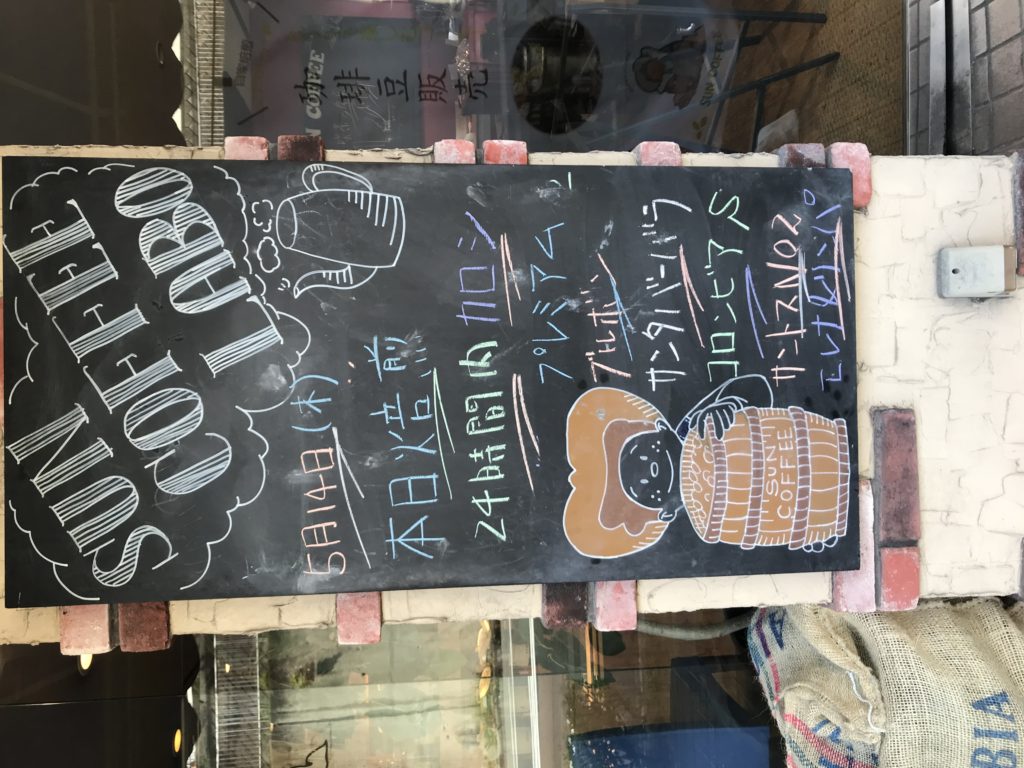 SUN
COFFEE
LABO
5月14日(木)
本日焙煎
24時間内
カロシ
プレミアム
ブルボン
サンタバーバラ
コロンビアS
サントスNo2
SUN
COFFEE
珈琲豆販売
N COFFEE
SUN COFFEE
BIA